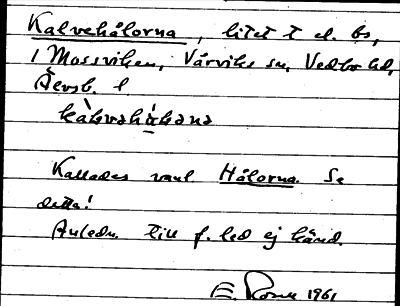 Kalvehålorna, litet t el. bs,
i Mossviken, Vårviks sn, Vedbo hd,
Älvsb. l.
Kallades vanl Hålorna. Se
detta!
Anledn. till f. led ej känd.
E. Rown 1961